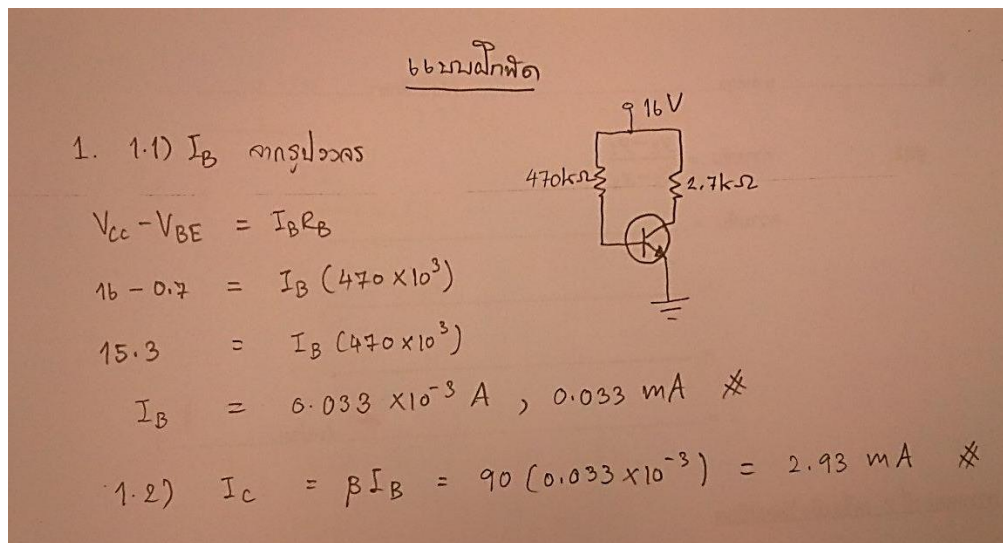 แบบฝึกหัด
1. 1.1) I_B จากรูปวงจร
16 V
470kΩ
2.7kΩ
V_CC - V_BE = I_B R_B
16 - 0.7 = I_B (470 × 10³)
15.3 = I_B (470 × 10³)
I_B = 0.033 × 10⁻³ A , 0.033 mA #
1.2) I_C = βI_B = 90 (0.033 × 10⁻³) = 2.93 mA #